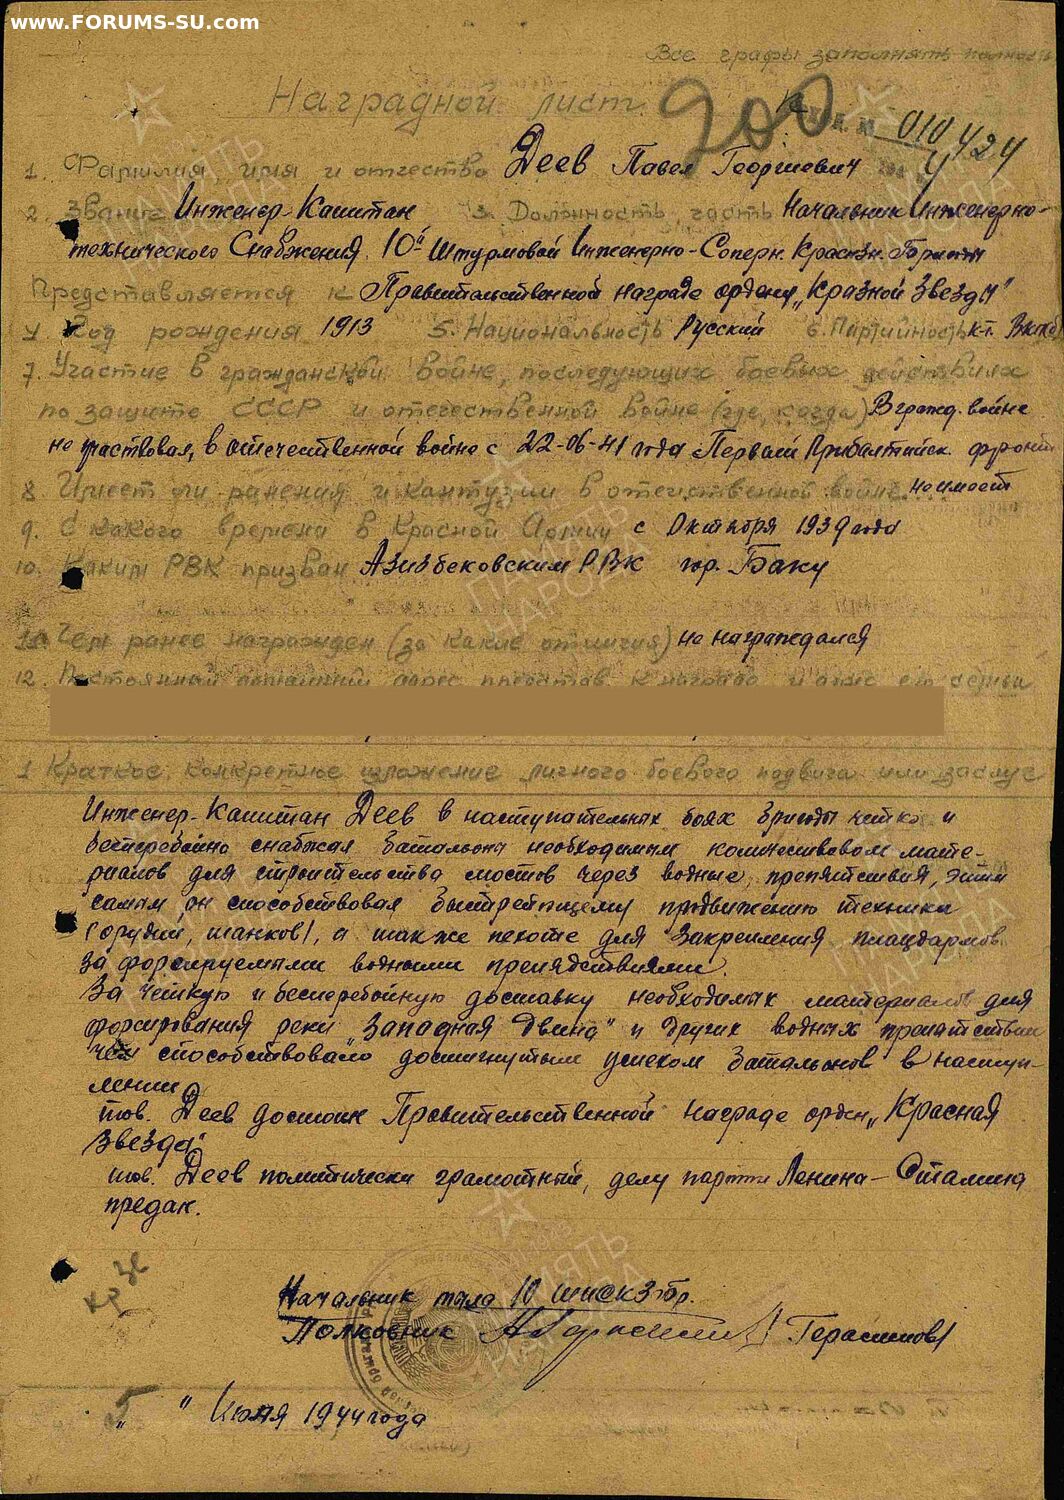 www.FORUMS-SU.com
Все графы заполнять полность
Наградной лист 900
010424
1. Фамилия, имя и отчество Деев Павел Георгиевич
2. Звание Инженер-Капитан 3. Должность, часть Начальник Инженерно-
технического Снабжения 10й Штурмовой Инженерно-Саперн. Краснзн. Бригады
Представляется к Правительственной награде ордену „Красной Звезды"
4 Год рождения 1913 5. Национальность Русский 6. Партийность к-т ВКПб
7. Участие в гражданской войне, последующих боевых действиях
по защите СССР и отечественной войне (где, когда) В гражд. войне
не участвовал, в отечественной войне с 22-06-41 года Первый Прибалтийск. фронт
8. Имеет ли ранения и контузии в отечественной войне не имеет
9. С какого времени в Красной Армии с Октября 1939 года
10. Каким РВК призван Азизбековским РВК гор. Баку
Чем ранее награжден (за какие отличия) не награждался
12. Постоянный домашний адрес представ. к награде и адрес его семьи
1 Краткое, конкретное изложение личного боевого подвига или заслуг
Инженер-Капитан Деев в наступательных боях бригады четко и
бесперебойно снабжал батальоны необходимым количеством мате-
риалов для строительства мостов через водные препятствия, этим
самым он способствовал быстрейшему продвижению техники
(орудий, танков), а также пехоте для закрепления плацдармов
за форсируемыми водными препядствиями.
За четкую и бесперебойную доставку необходимых материалов для
форсирования реки „Западная Двина" и других водных препятствий
чем способствовало достигнутым успехом батальонов в наступ-
лении
тов. Деев достоин Правительственной награде орден „Красная
Звезда".
тов. Деев политически грамотный, делу партии Ленина-Сталина
предан.
Начальник тыла 10 шискзбр.
Полковник (Герасимов)
„5" Июля 1944 года
ПАМЯТЬ НАРОДА